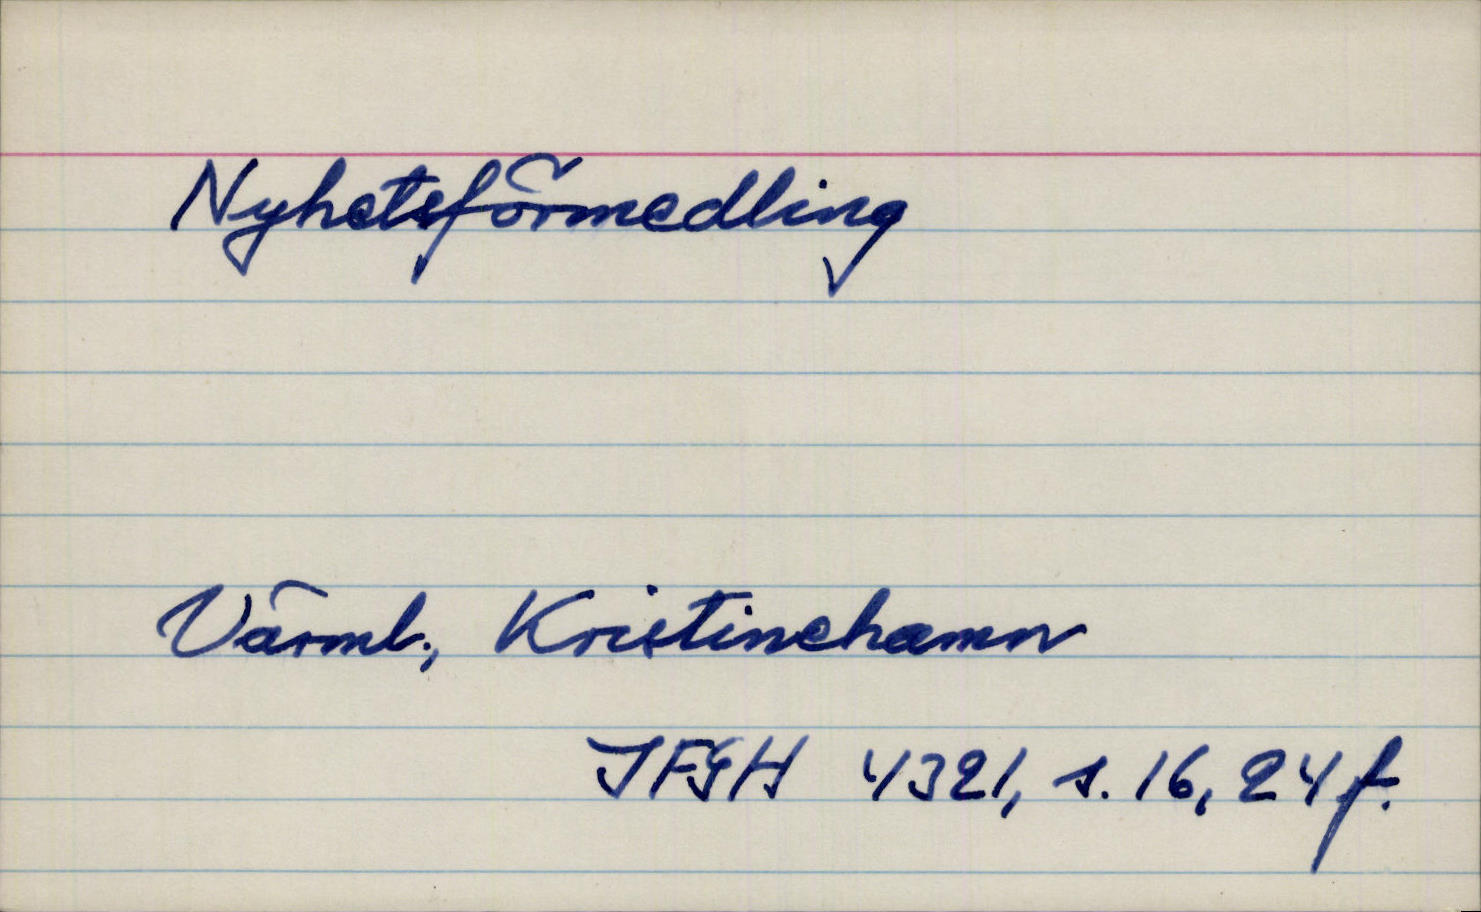 Nyhetsförmedling
Värml., Kristinehamn
IFGH 4321, s. 16, 24 f.